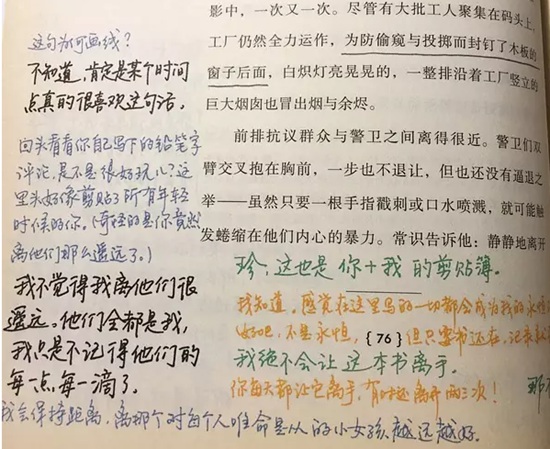 这句为何画线？
不知道，肯定是某个时间
点真的很喜欢这句话，
回头看看你自己写下的铅笔字
评论，是不是很好玩儿？这
里头好像剪贴了所有年轻
时候的你。（奇怪的是你竟然
离他们那么遥远了。）
我不觉得我离他们很
遥远。他们全都是我，
我只是不记得他们的
每一点每一滴了。
影中，一次又一次。尽管有大批工人聚集在码头上，
工厂仍然全力运作，为防偷窥与投掷而封钉了木板的
窗子后面，白炽灯亮晃晃的，一整排沿着工厂竖立的
巨大烟囱也冒出烟与余烬。
前排抗议群众与警卫之间离得很近。警卫们双
臂交叉抱在胸前，一步也不退让，但也还没有逼退之
举——虽然只要一根手指戳刺或口水喷溅，就可能触
发蜷缩在他们内心的暴力。常识告诉他：静静地离开
珍，这也是你＋我的剪贴簿。
我知道。感觉在这里写的一切都会成为我的永恒
好吧，不是永恒， {76} 但只要书还在，记录就
我绝不会让这本书离手。
你每天都让它离手，有时还离开两三次！
那
我会保持距离，离那个对每个人唯命是从的小女孩越远越好。